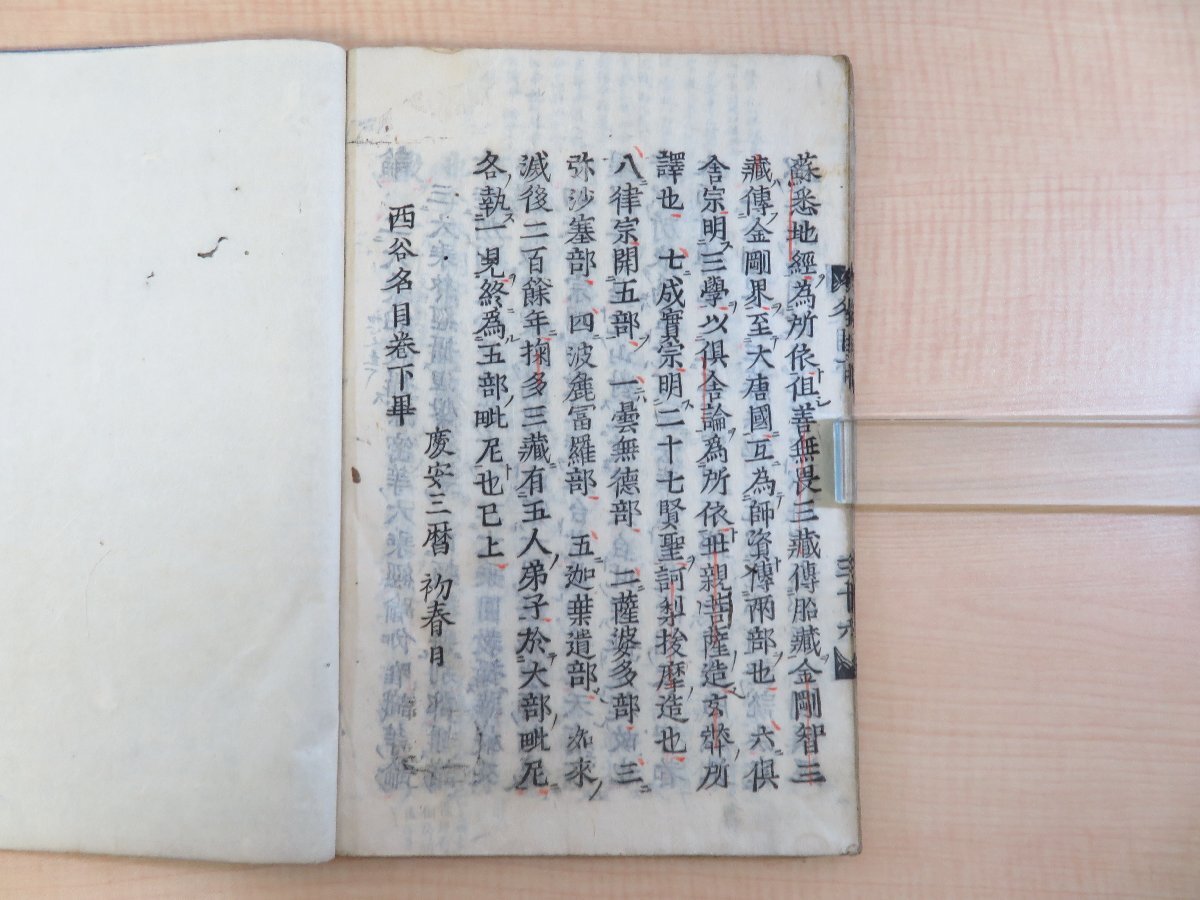 蘇悉地經為所依祖善無畏三藏傳胎藏金剛智三
藏傳金剛界至大唐國互為師資傳兩部也六俱
舍宗明三學以俱舍論為所依世親菩薩造玄奘所
譯也七成實宗明二十七賢聖訶梨抜摩造也
八律宗開五部一曇無德部二薩婆多部三
弥沙塞部四波麁冨羅部五迦葉遺部如來
滅後二百餘年掬多三藏有五人弟子於大部毗尼
各執一見終為五部毗尼也已上
慶安三暦初春月
西谷名目卷下畢
三十六